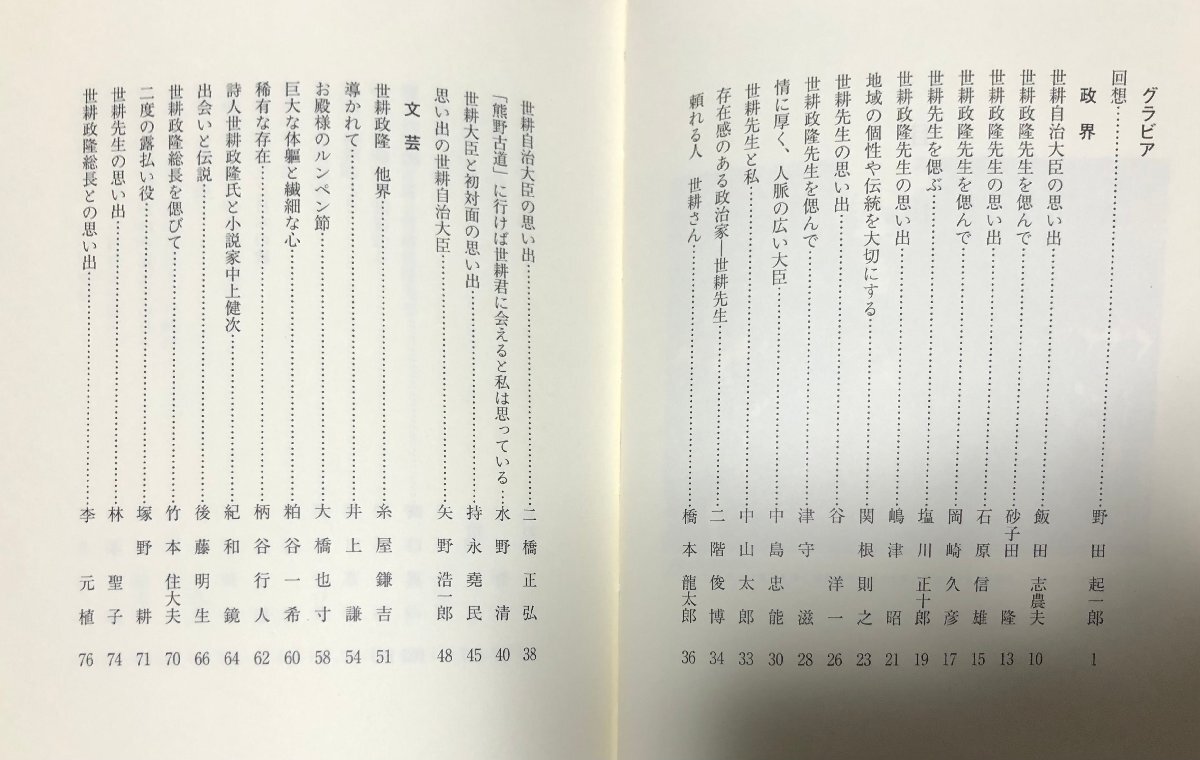 グラビア
回想……………野田起一郎 1
政界
世耕自治大臣の思い出……………飯田志農夫 10
世耕政隆先生を偲んで……………砂子田隆 13
世耕政隆先生の思い出……………石原信雄 15
世耕政隆先生を偲んで……………岡崎久彦 17
世耕先生を偲ぶ……………塩川正十郎 19
世耕政隆先生の思い出……………嶋津昭 21
地域の個性や伝統を大切にする……………関根則之 23
世耕先生の思い出……………谷洋一 26
世耕政隆先生を偲んで……………津守滋 28
情に厚く、人脈の広い大臣……………中島忠能 30
世耕先生と私……………中山太郎 33
存在感のある政治家―世耕先生……………二階俊博 34
頼れる人 世耕さん……………橋本龍太郎 36
世耕自治大臣の思い出……………二橋正弘 38
「熊野古道」に行けば世耕君に会えると私は思っている…水野清 40
世耕大臣と初対面の思い出……………持永堯民 45
思い出の世耕自治大臣……………矢野浩一郎 48
文芸
世耕政隆 他界……………糸屋鎌吉 51
導かれて……………井上謙 54
お殿様のルンペン節……………大橋也寸 58
巨大な体軀と繊細な心……………粕谷一希 60
稀有な存在……………柄谷行人 62
詩人世耕政隆氏と小説家中上健次……………紀和鏡 64
出会いと伝説……………後藤明生 66
世耕政隆総長を偲びて……………竹本住大夫 70
二度の露払い役……………塚野耕 71
世耕先生の思い出……………林聖子 74
世耕政隆総長との思い出……………李元植 76